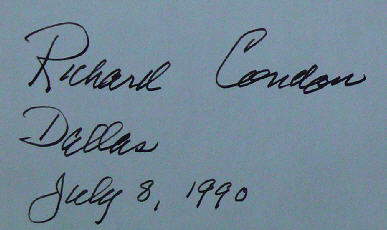 Richard Condon
Dallas
July 8, 1990